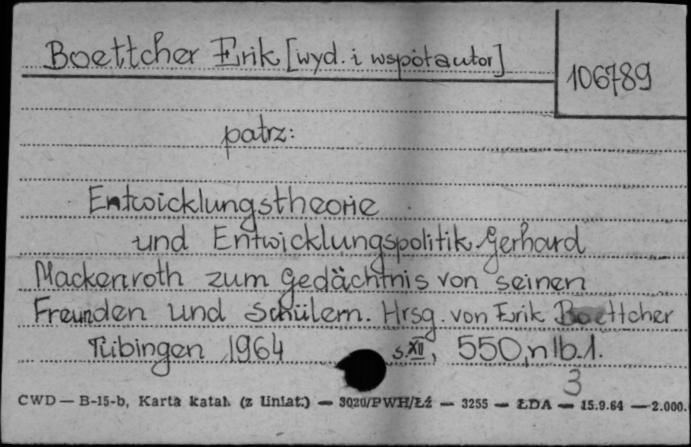 Boettcher Erik [wyd. i współautor]
106789
patrz:
Entwicklungstheorie
und Entwicklungspolitik. Gerhard
Mackenroth zum Gedächtnis von seinen
Freunden und Schülern. Hrsg. von Erik Boettcher
Tübingen 1964 s. XII, 550, nlb. 1.
3
CWD — B-15-b, Karta katal. (z liniat.) — 3020/PWH/Łź — 3255 — ŁDA — 15.9.64 — 2.000.